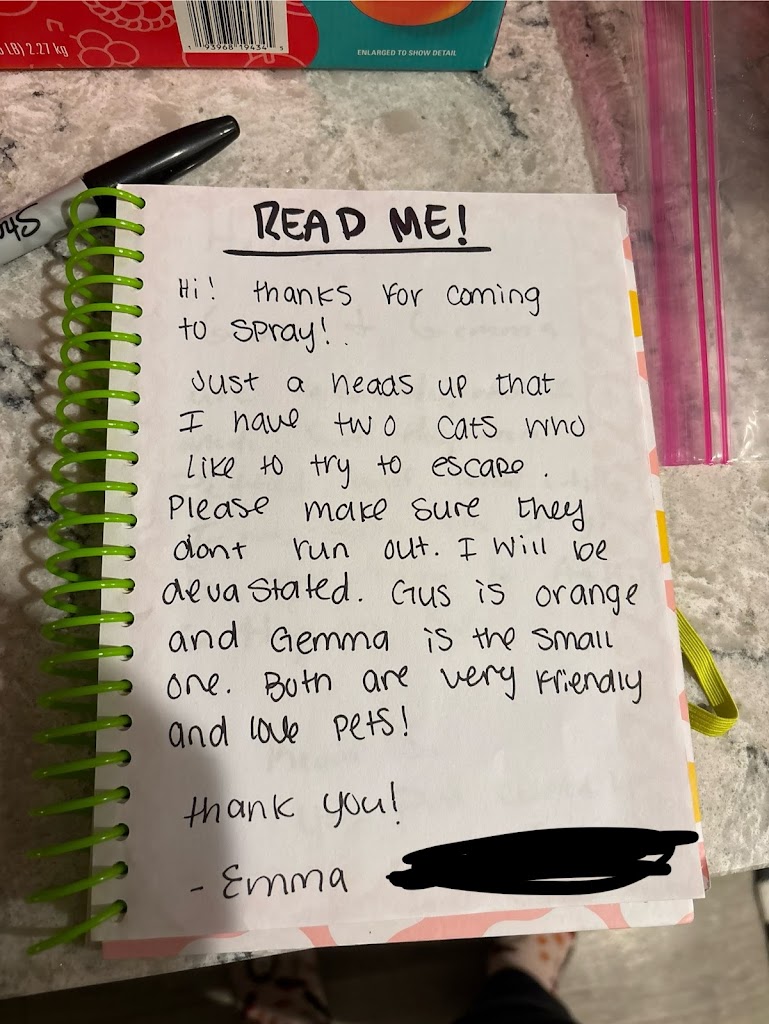 5 LB) 2.27 kg
1 93968 19434 5
ENLARGED TO SHOW DETAIL
READ ME!
Hi! thanks for coming
to spray!
Just a heads up that
I have two cats who
like to try to escape.
Please make sure they
dont run out. I will be
devastated. Gus is orange
and Gemma is the small
one. Both are very friendly
and love pets!
thank you!
- Emma